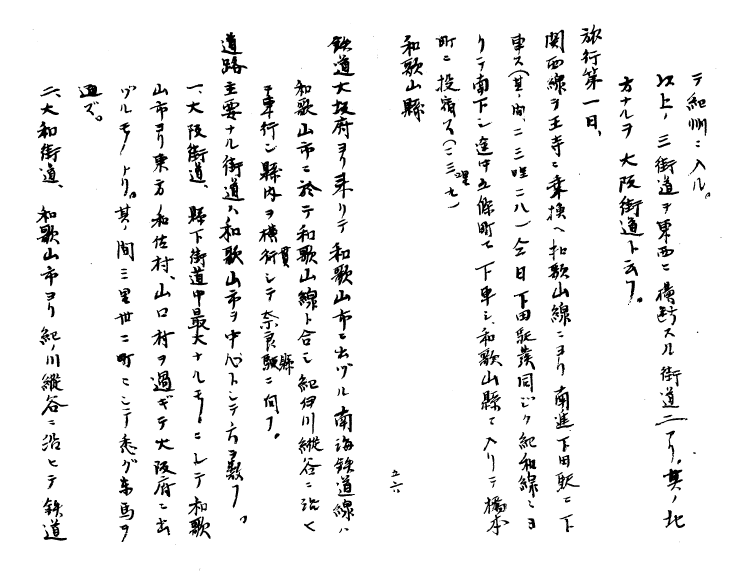 テ紀州ニ入ル。
以上ノ三街道ヲ東西ニ横断スル街道二アリ。其ノ北
方ナルヲ大阪街道ト云フ。
旅行第一日、
関西線ヲ王寺ニ乗換ヘ和歌山線ニヨリ南進下田駅ニ下
車ス(其ノ間、二三哩二八)今日下田駅発同ジク紀和線ニヨ
リテ南下シ途中五條町ニテ下車シ、和歌山縣ニ入リテ橋本
町ニ投宿ス(二三哩九)
和歌山縣
五六
鉄道大坂府ヨリ来リテ和歌山市ニ出ヅル南海鉄道線ハ
和歌山市ニ於テ和歌山線ト合シ紀伊川縦谷ニ沿ヒ
テ東行シ縣内ヲ横貫シテ奈良縣ニ向フ。
道路主要ナル街道ハ和歌山市ヲ中心トシテ六ヲ数フ。
一、大阪街道、縣下街道中最大ナルモノニシテ和歌
山市ヨリ東方ノ和佐村、山口村ヲ過ギテ大阪府ニ出
ヅルモノトリ。其ノ間三里卅二町ニシテ悉グ車馬ヲ
通ズ。
二、大和街道、和歌山市ヨリ紀ノ川縦谷ニ沿ヒテ鉄道